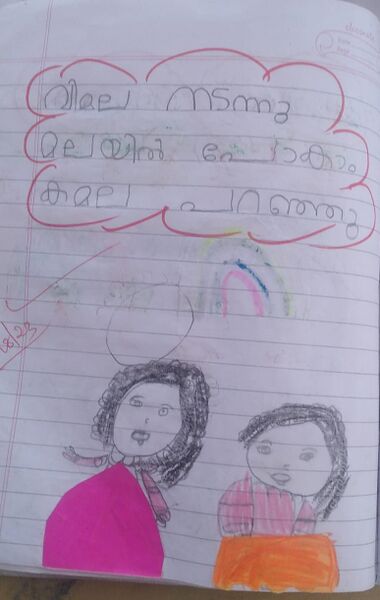 വിമല നടന്നു
മലയിൽ പോകാം
കമല പറഞ്ഞു
8/23